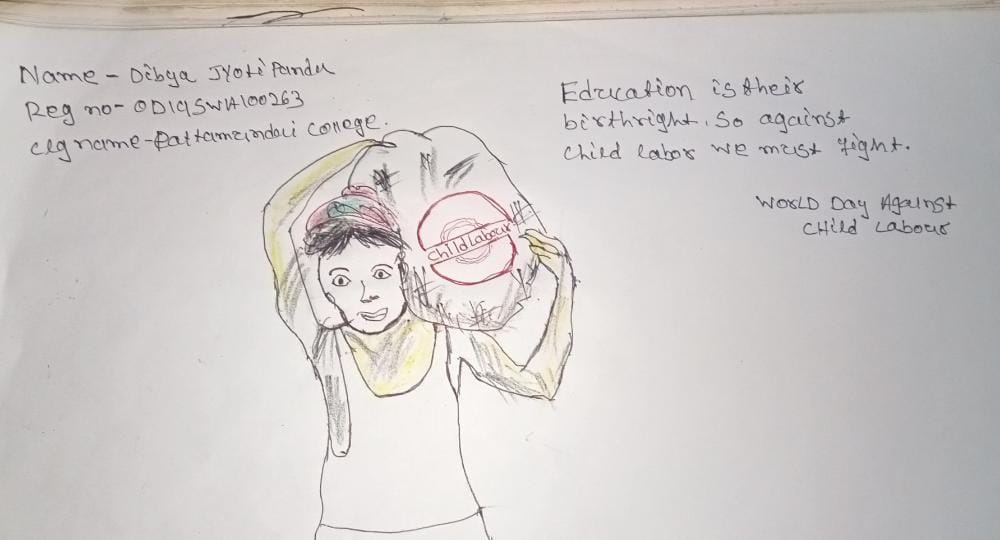 Name - Dibya Jyoti Panda
Reg no- OD19SWA100263
clg name- Pattamundai College.
Education is their
birthright. So against
child labor we must fight.
WORLD Day Against
CHild Labour
Child Labour